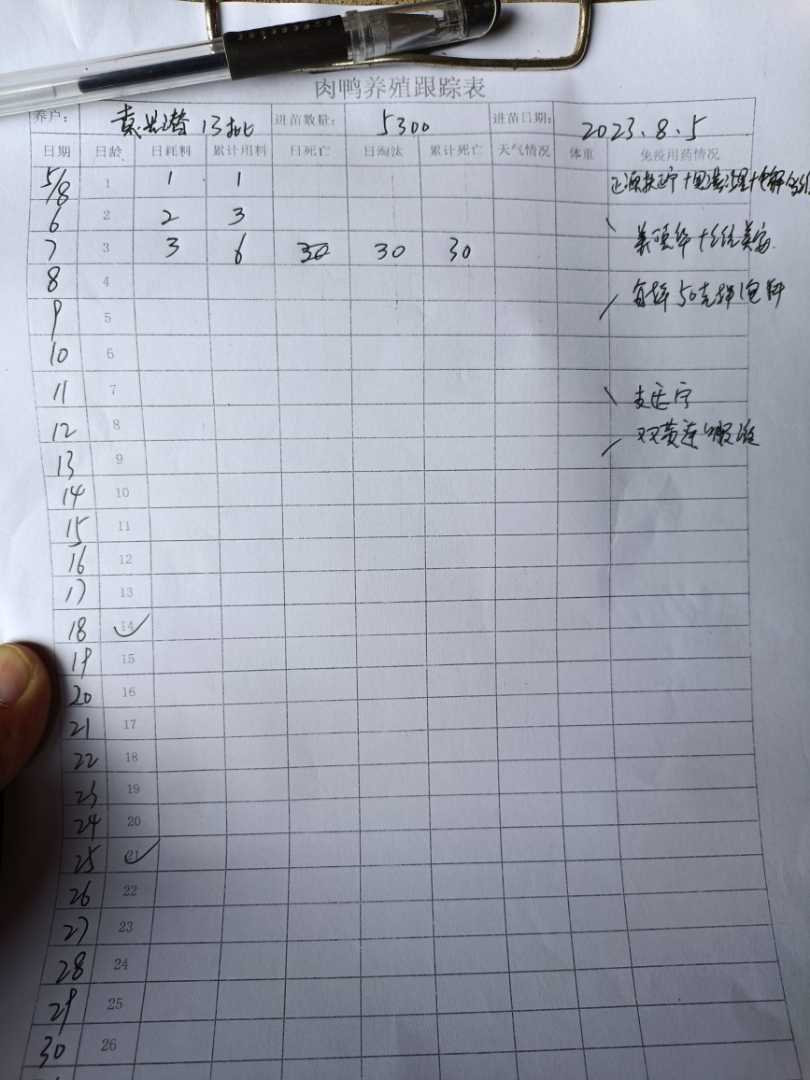 肉鸭养殖跟踪表
养户: 13批 进苗数量: 5300 进苗日期: 2023.8.5
日期 日龄 日耗料 累计用料 日死亡 日淘汰 累计死亡 天气情况 体重 免疫用药情况
5/8 1 1 1
6 2 2 3
7 3 3 6 30 30 30
8 4 每 50克 1包料
9 5
10 6
11 7
12 8 双黄连
13 9
14 10
15 11
16 12
17 13
18 14
19 15
20 16
21 17
22 18
23 19
24 20
25 21
26 22
27 23
28 24
29 25
30 26